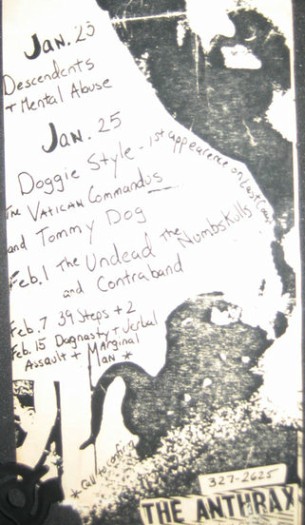 Jan. 23
Descendents
+ Mental Abuse
Jan. 25
Doggie Style - 1st appearence on East Coast
The Vatican Commandos
and Tommy Dog
Feb. 1 The Undead The Numbskulls
and Contraband
Feb. 7 39 Steps + 2
Feb. 15 Dagnasty + Verbal
Assault + Marginal
Man *
* Call to confirm
327-2625
THE ANTHRAX